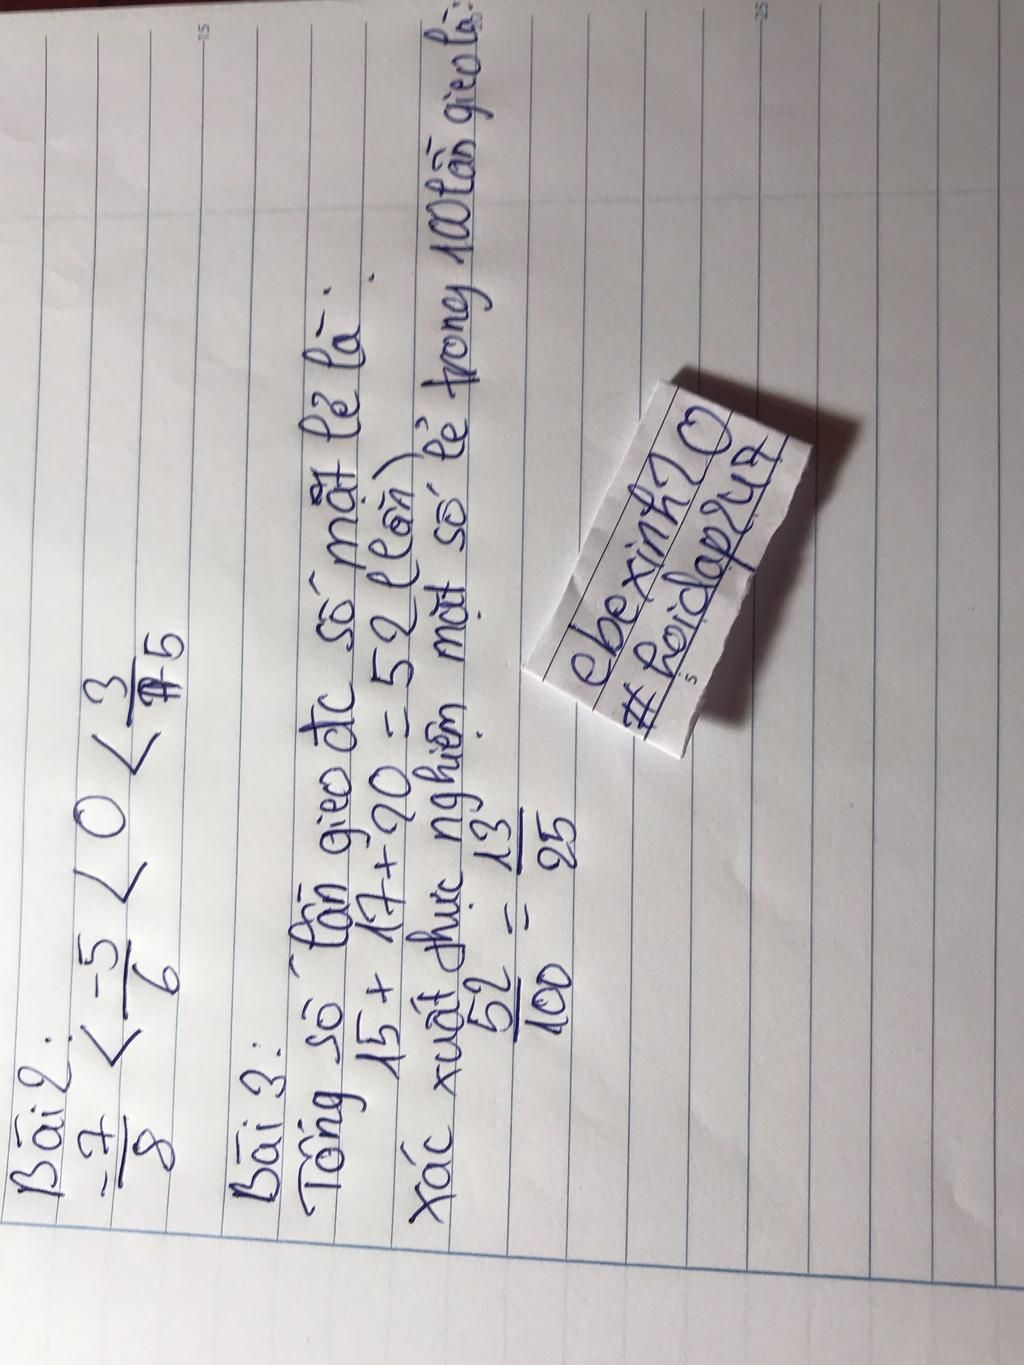 Bài 2:
-7/8 < -5/6 < 0 < 3/5
Bài 3:
Tổng số lần gieo đc số mặt lẻ là:
15 + 17 + 20 = 52 (lần)
Xác xuất thực nghiệm mặt số lẻ trong 100 lần gieo là:
52/100 = 13/25
ebexinh20
#hoidap247
15
25
5